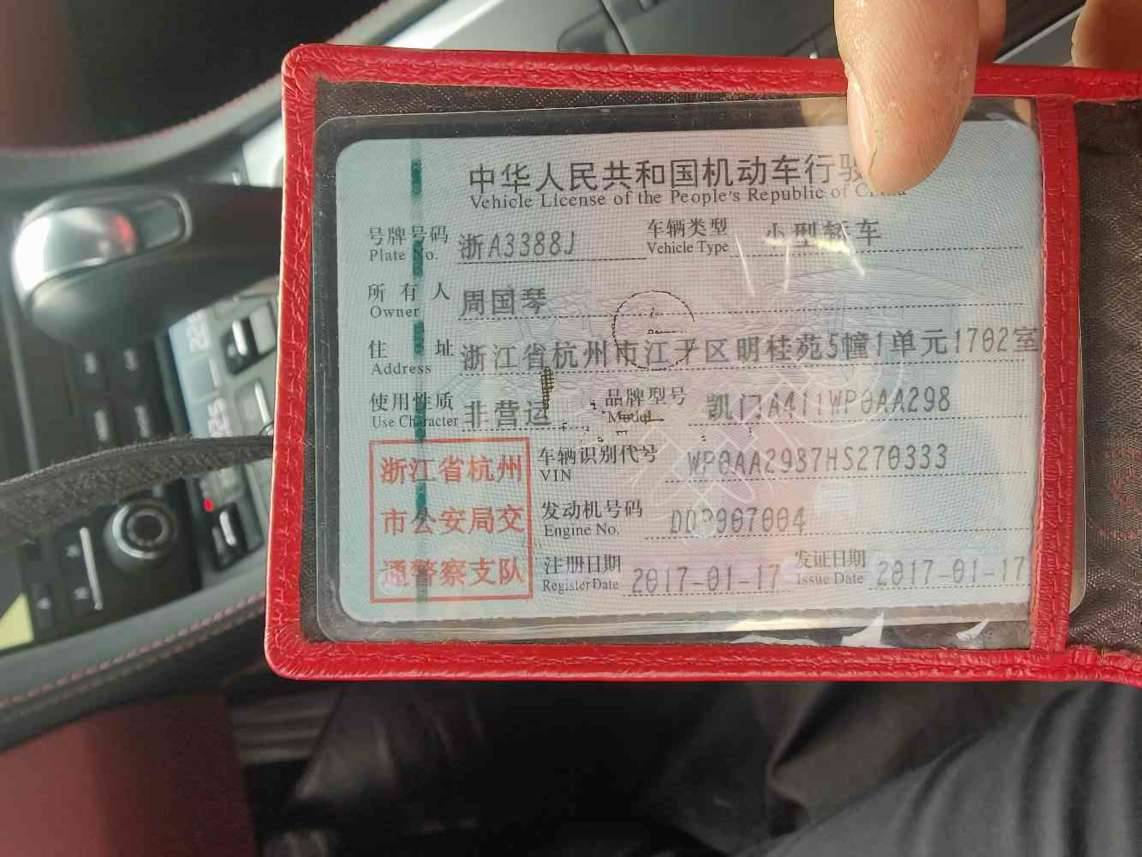 中华人民共和国机动车行驶
Vehicle License of the People's Republic of China
号牌号码 浙A3388J 车辆类型 小型轿车
Plate No. Vehicle Type
所有人 周国琴
Owner
住址 浙江省杭州市江干区明桂苑5幢1单元1702室
Address
使用性质 非营运 品牌型号 凯门A411WP0AA298
Use Character Model
浙江省杭州
市公安局交
通警察支队
车辆识别代号 WP0AA2987HS270333
VIN
发动机号码
Engine No.
注册日期 2017-01-17 发证日期 2017-01-17
Register Date Issue Date